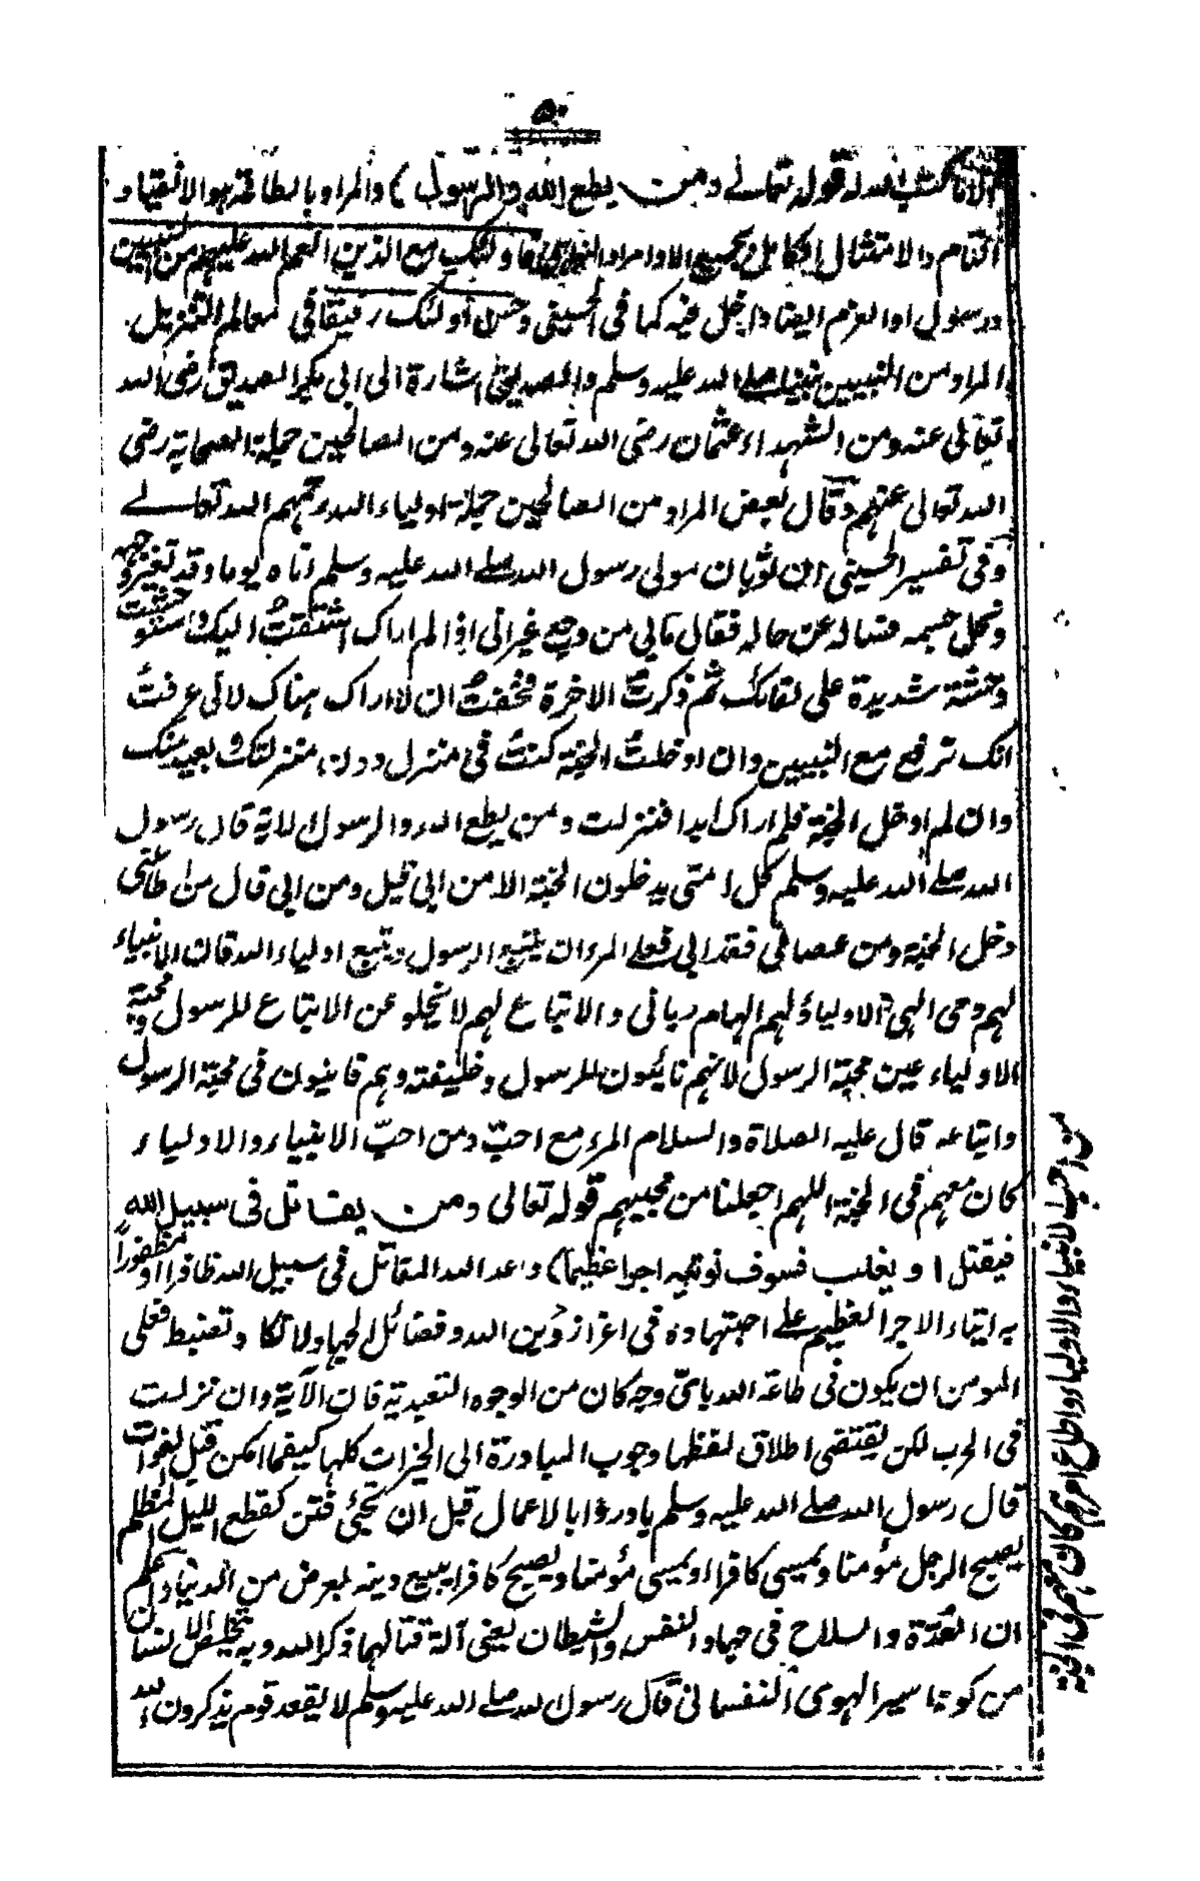 ٥٠
الا ما كتب الله له قوله تعالے ومن يطع الله والرسول) والمراد بالطاعة هو الانقياد
التام والامتثال الكامل بجميع الاوامر والنواهي فاولئك مع الذين انعم الله عليهم من النبيين
ورسول اوالعزم ايضا داخل فيه كما فى الحسينى وحسن أولئك رفيقا فى معالم التنزيل
المراد من النبيين نبينا صلے الله عليه وسلم والصديقين اشارة الى ابى بكر الصديق رضى الله
تعالى عنه ومن الشهداء عثمان رضى الله تعالى عنه ومن الصالحين جملة الصحابة رضى
الله تعالى عنهم وقال بعض المراد من الصالحين جملة اولياء الله رحمهم الله تعالے
وفى تفسير الحسينى ان ثوبان مولى رسول الله صلے الله عليه وسلم اتاه يوما وقد تغير وجهه
ونحل جسمه فساله عن حاله فقال مابى من وجع غير انى اذا لم اراك اشتقتُ اليك واستوحشت
وحشة شديدة على لقائك ثم ذكرتُ الاخرة فخفتُ ان لا اراك هناك لانى عرفتُ
انك ترفع مع النبيين وان ادخلتُ الجنة كنتُ فى منزل دون منزلتك وبعيد منك
وان لم ادخل الجنة فلم اراك ابدا فنزلت ومن يطع الله والرسول لاية قال رسول
الله صلے الله عليه وسلم كل امتى يدخلون الجنة الا من ابى قيل ومن ابى قال من اطاعنى
دخل الجنة ومن عصانى فقد ابى فعلے المرء ان يتبع الرسول ويتبع اولياء الله فان الانبياء
لهم وحى الهى والاولياءُ لهم الهام ربانى والاتباع لهم لا يخلو عن الاتباع للرسول ومحبة
الاولياء عين محبة الرسول لانهم نائبون للرسول وخليفته وهم فانيون فى محبة الرسول
واتباعه قال عليه الصلاة والسلام المرء مع احبّ ومن احبّ الانبياء والاولياء
كان معهم فى الجنة اللهم اجعلنا من محبيهم قوله تعالى ومن يقاتل فى سبيل الله
فيقتل او يغلب فسوف نوتيه اجرا عظيما) وعد الله المقاتل فى سبيل الله ظافرا او مظفوراً
به ايتاء الاجر العظيم علے اجتهاده فى اعزاز دين الله وفضائل الجهاد لا تكاد تضبط فعلى
المومن ان يكون فى طاعة الله باىّ وجه كان من الوجوه التعبدية فان الآية وان نزلت
فى الحرب لكن يقتضى اطلاق لفظها وجوب المبادرة الى الخيرات كلها كيفما امكن قبل الفوات
قال رسول الله صلے الله عليه وسلم بادروا بالاعمال قبل ان تجئ فتن كقطع الليل المظلم
يصبح الرجل مؤمنا ويمسى كافرا او يمسى مؤمنا ويصبح كافرا يبيع دينه بعرض من الدنيا واعلم
ان العُدّة والسلاح فى جهاد النفس والشيطان يعنى آلة قتالهما ذكر الله وبه تخلص الانسان
من كونه اسير الهوى النفسانى قال رسول الله صلے الله عليه وسلم لا يقعد قوم يذكرون الله
من احب الانبياء والاولياء واطاع امرهم كان معهم فى الجنة